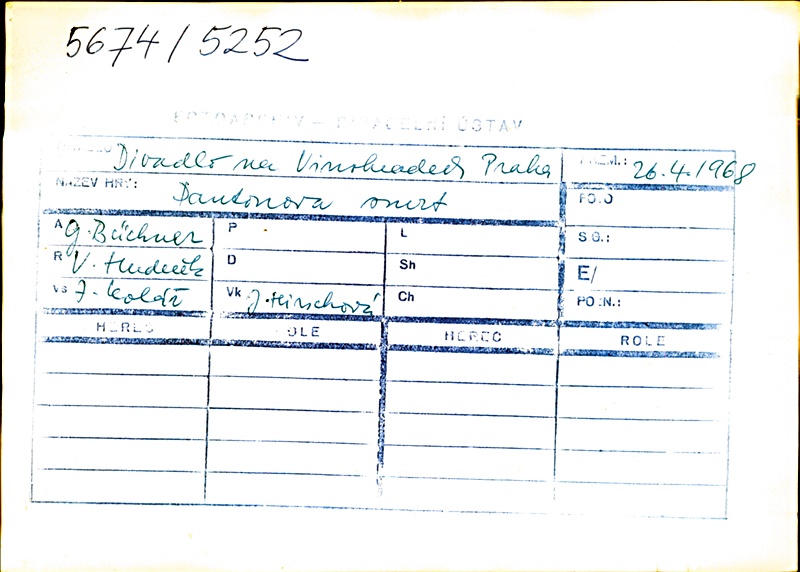 5674/5252
FOTOARCHIV – DIVADELNÍ ÚSTAV
Divadlo na Vinohradech Praha PREM.: 26.4.1968
NÁZEV HRY: Dantonova smrt FO.O
A G. Büchner P L SG.:
R V. Hudeček D Sh E/
Vs J. Kolář Vk J. Hirschová Ch PO.N.:
HEREC ROLE HEREC ROLE